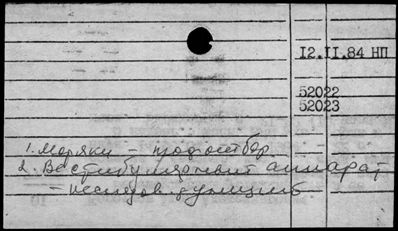 12.11.84 НП
52022
52023
1. Моряки – профотбор
2. Вестибулярный аппарат
– исследов. функций